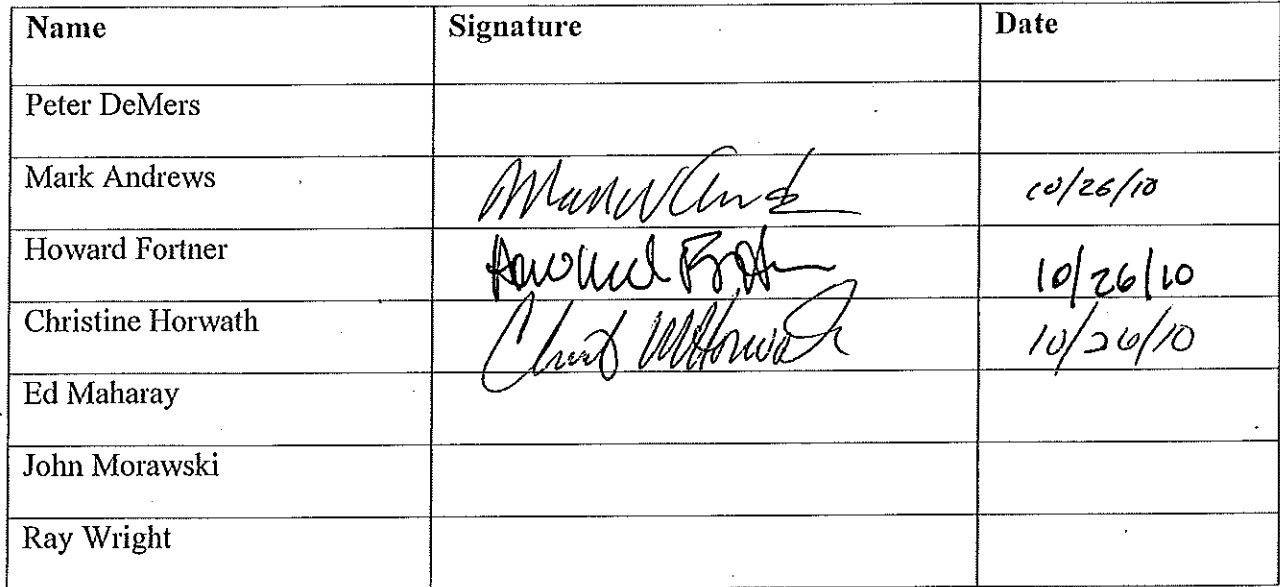 Name Signature Date
Peter DeMers
Mark Andrews 10/26/10
Howard Fortner Howard Fortner 10/26/10
Christine Horwath Christ M Horwath 10/26/10
Ed Maharay
John Morawski
Ray Wright